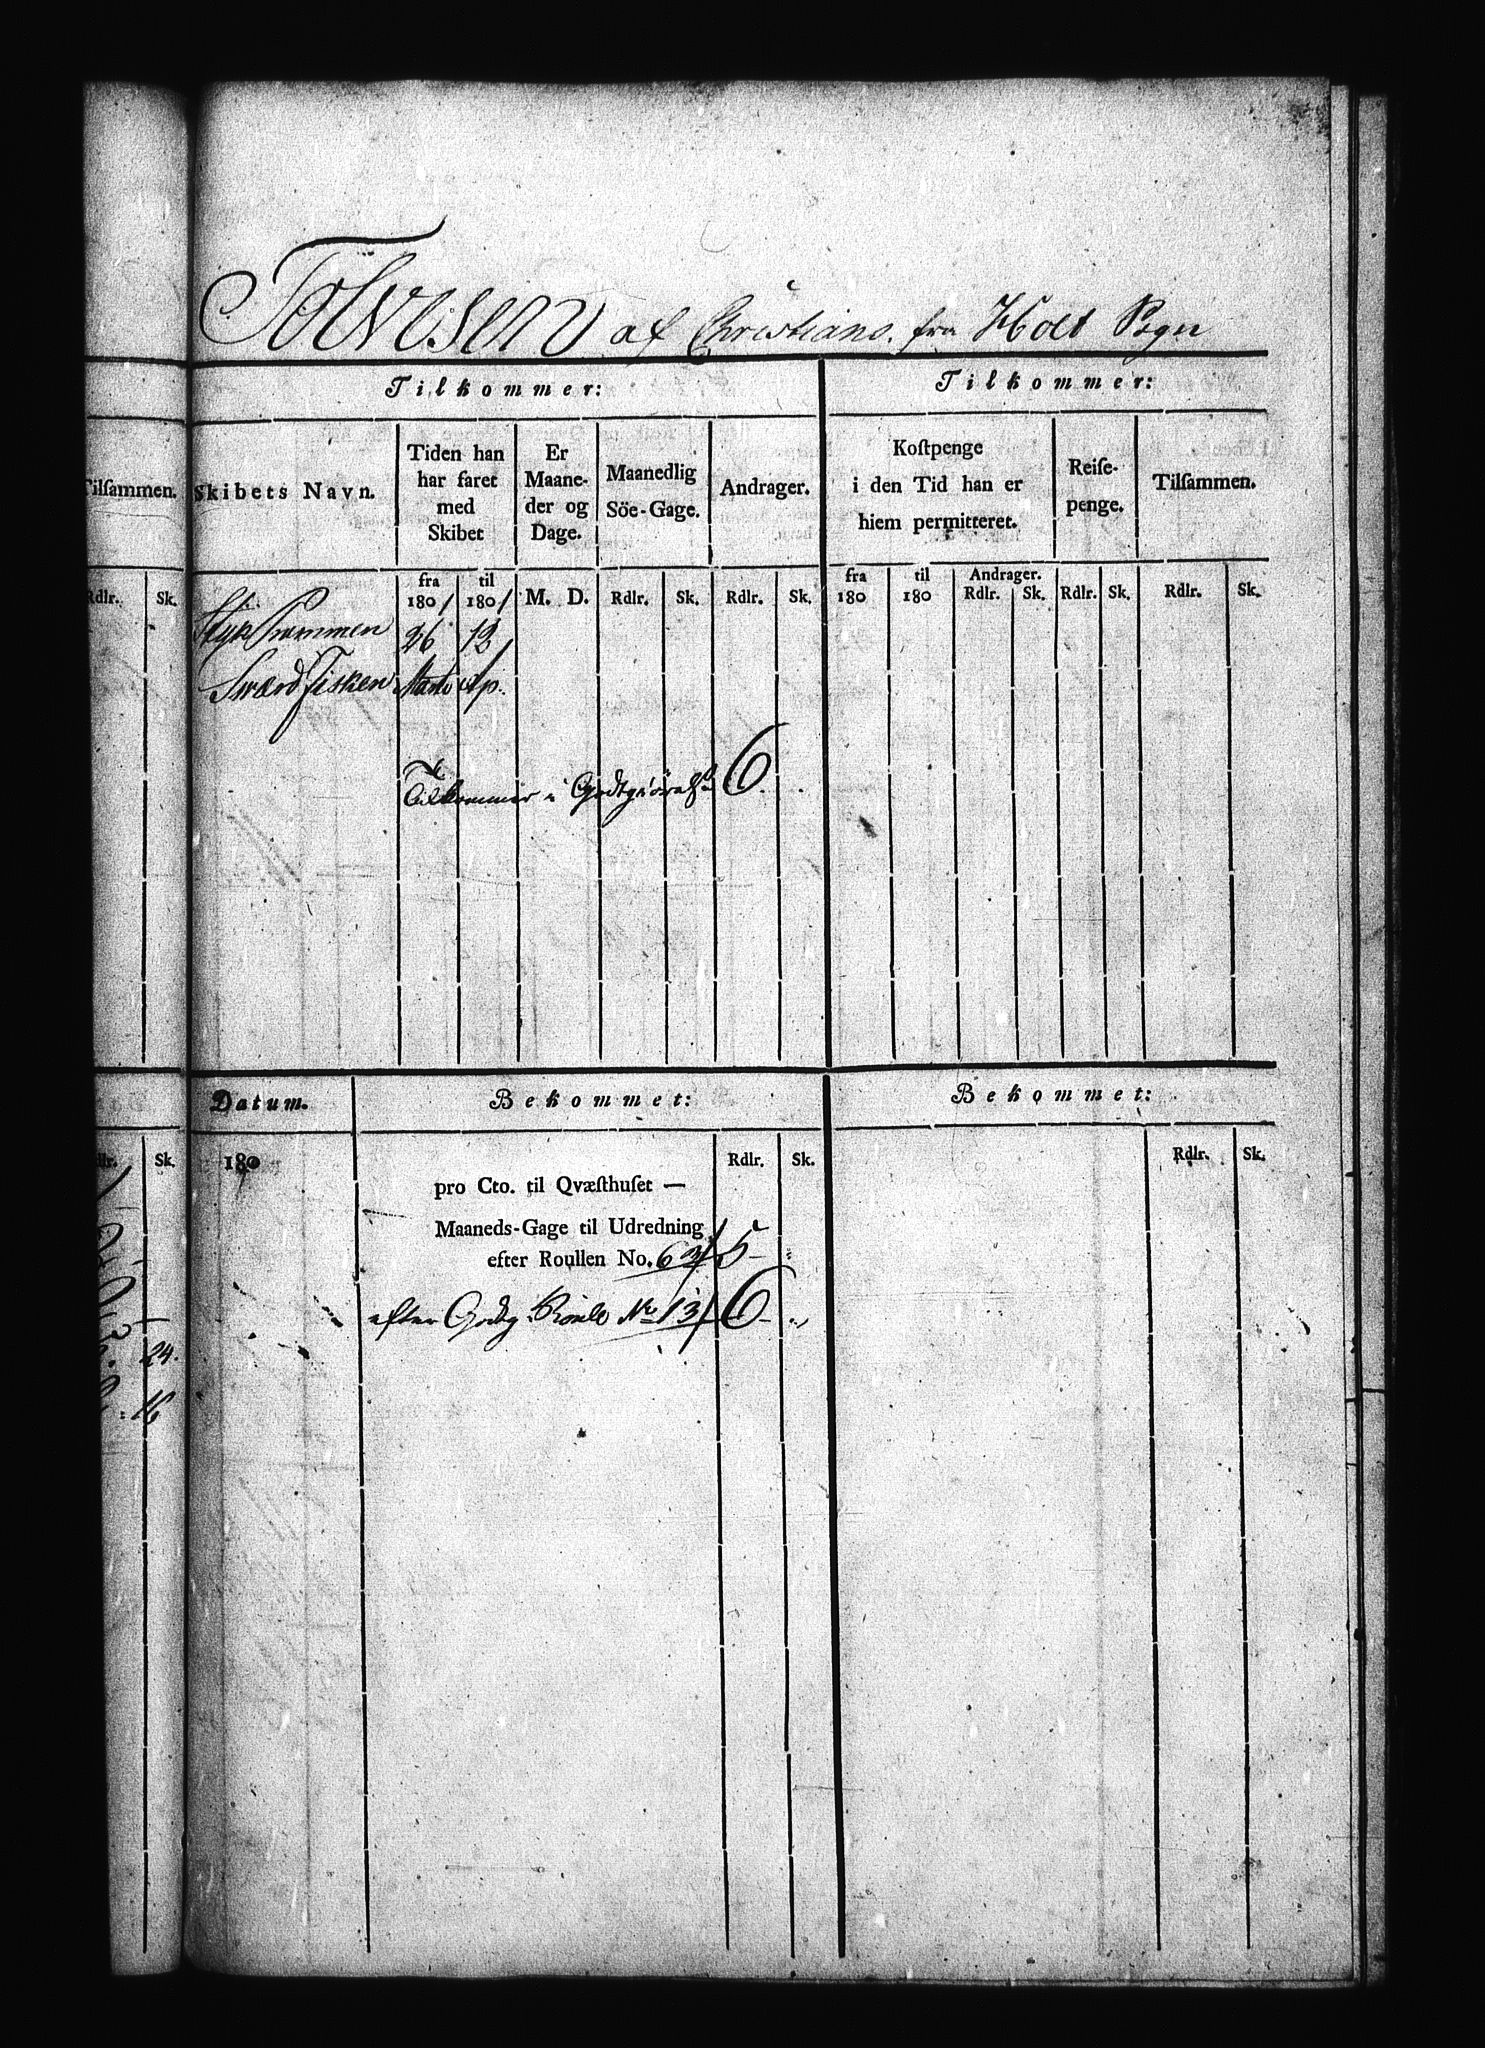 Tolvesen af Christians. fra Holt Sogn
Tilkommer:
Tilkommer:
Tilsammen.
Skibets Navn.
Tiden han
har faret
med
Skibet
Er
Maane-
der og
Dage.
Maanedlig
Söe-Gage.
Andrager.
Kostpenge
i den Tid han er
hiem permitteret.
Reise-
penge.
Tilsammen.
Rdlr. Sk.
fra
1801
til
1801
M. D. Rdlr. Sk. Rdlr. Sk.
fra
180
til
180
Andrager.
Rdlr. Sk. Rdlr. Sk. Rdlr. Sk.
Styk Prammen 26 12
Sværd Fisken Marts Ap.
Tilkommer i Godtgiörelse 6. .
Datum. Bekommet: Bekommet:
Rdlr. Sk.
180
Rdlr. Sk.
Rdlr. Sk.
pro Cto. til Qvæsthuset —
Maaneds-Gage til Udredning
efter Roullen No. 63/ 5 "
efter Godtg. Roulle No 13/ 6 - "
24.
16